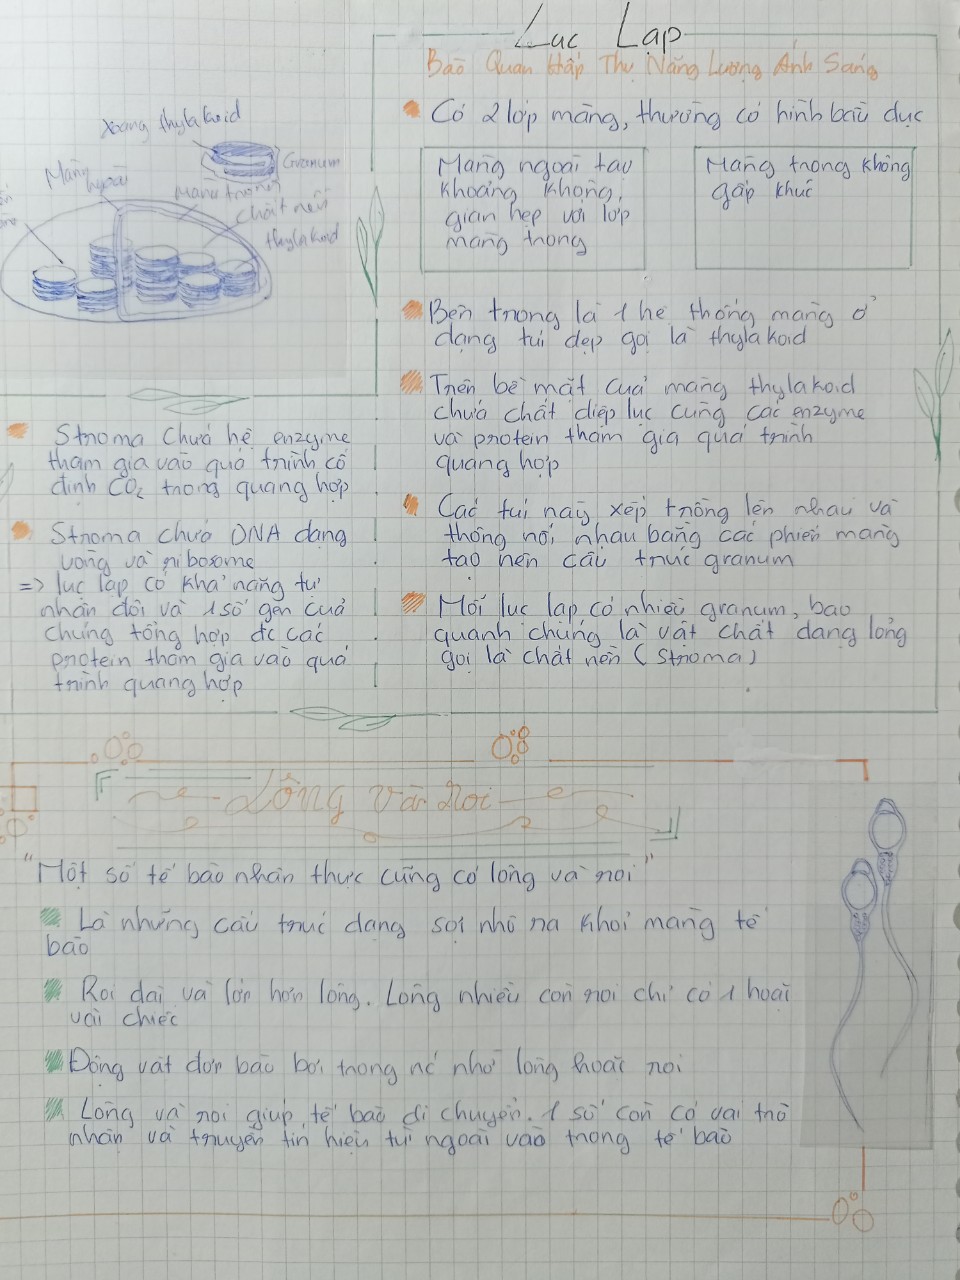 Lục Lạp
Bào Quan Hấp Thụ Năng Lượng Ánh Sáng
Xoang thylakoid
Granum
Màng
ngoài
Màng trong
Chất nền
thylakoid
Có 2 lớp màng, thường có hình bầu dục
Màng ngoài tạo
khoảng không,
gian hẹp với lớp
màng trong
Màng trong không
gấp khúc
Bên trong là 1 hệ thống màng ở
dạng túi dẹp gọi là thylakoid
Trên bề mặt của màng thylakoid
chứa chất diệp lục cùng các enzyme
và protein tham gia quá trình
quang hợp
Các túi này xếp trồng lên nhau và
thông nối nhau bằng các phiến màng
tạo nên cấu trúc granum
Mỗi lục lạp có nhiều granum, bao
quanh chúng là vật chất dạng lỏng
gọi là chất nền (stroma)
Stroma chứa hệ enzyme
tham gia vào quá trình cố
định CO₂ trong quang hợp
Stroma chứa DNA dạng
vòng và ribosome
=> lục lạp có khả năng tự
nhân đôi và 1 số gen của
chúng tổng hợp đc các
protein tham gia vào quá
trình quang hợp
Lông Và Roi
"Một số tế bào nhân thực cũng có lông và roi"
Là những cấu trúc dạng sợi nhô ra khỏi màng tế
bào
Roi dài và lớn hơn lông. Lông nhiều còn roi chỉ có 1 hoặc
vài chiếc
Động vật đơn bào bơi trong nc nhờ lông hoặc roi
Lông và roi giúp tế bào di chuyển. 1 số còn có vai trò
nhận và truyền tín hiệu từ ngoài vào trong tế bào